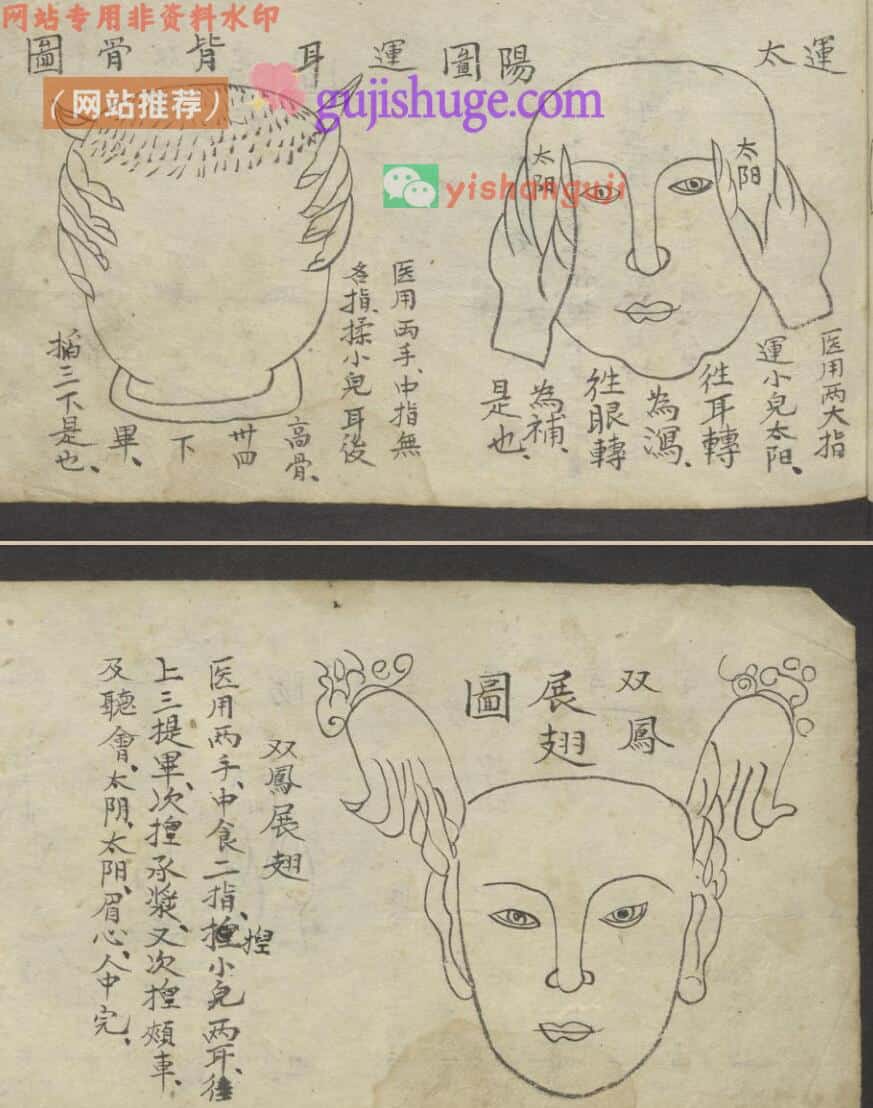 网站专用非资料水印
（网站推荐）
gujishuge.com
yishanguji
運太陽圖
太阳
太阴
医用两大指
運小兒太阳、
往耳轉
為瀉、
往眼轉
為補、
是也、
運耳背骨圖
医用両手、中指無
名指、揉小兒耳後
高骨、
卅四
下
畢、
掐三下是也、
双鳳
展翅
圖
双鳳展翅
医用两手、中食二指、揑小兒两耳、往
揑
上三提畢、次揑承漿、又次揑頰車、
及聽會、太阴、太阳、眉心、人中完、